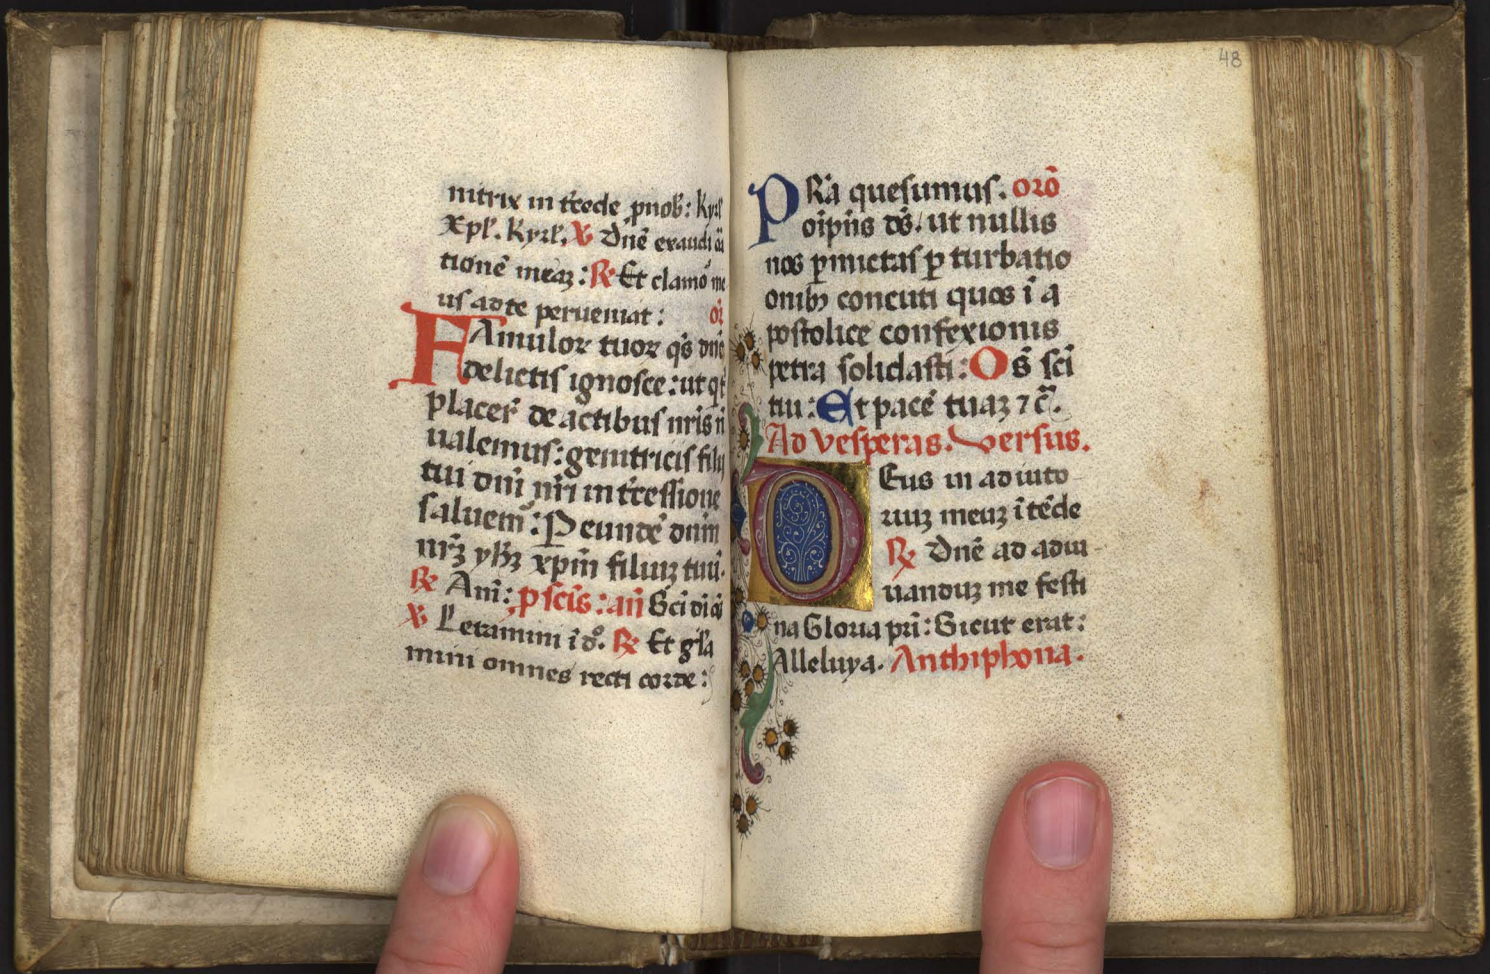 nitrix in t̄cede p nob᷒: Kyrl̄
Xpl̄. Kyrl̄. ℣ Dn̄e exaudi
tionē meaꝫ: ℟ Et clamō me
us ad te perueniat: or̄
Famuloꝝ tuoꝝ qs̄ dn̄e
delictis ignosce: ut q
placeē de actibus nr̄is n̄
ualemus: genitricis filij
tui dn̄i nr̄i int̄cessione
saluem̄: P eundē dn̄m
nr̄ꝫ yhꝫ xpm̄ filiuꝫ tuū.
℟ Am̄: p scīs: an̄ Scī dī
℣ Letamini ī do. ℟ Et gl̄a
mini omnes recti corde:
48
PRa quesumus. orō
oīpn̄s ds̄. ut nullis
nos ꝑmictas ꝑ turbatio
onibꝫ concuti quos ī a
postolice confexionis
petra solidasti: Os̄ scī
tui: Et pacē tuaꝫ ⁊ c̄.
Ad vesperas. versus.
DEus in adiuto
riuꝫ meuꝫ ītēde
℟ Dn̄e ad adiu-
uanduꝫ me festi
na Gloria pr̄i: Sicut erat:
Alleluya. Anthiphona.